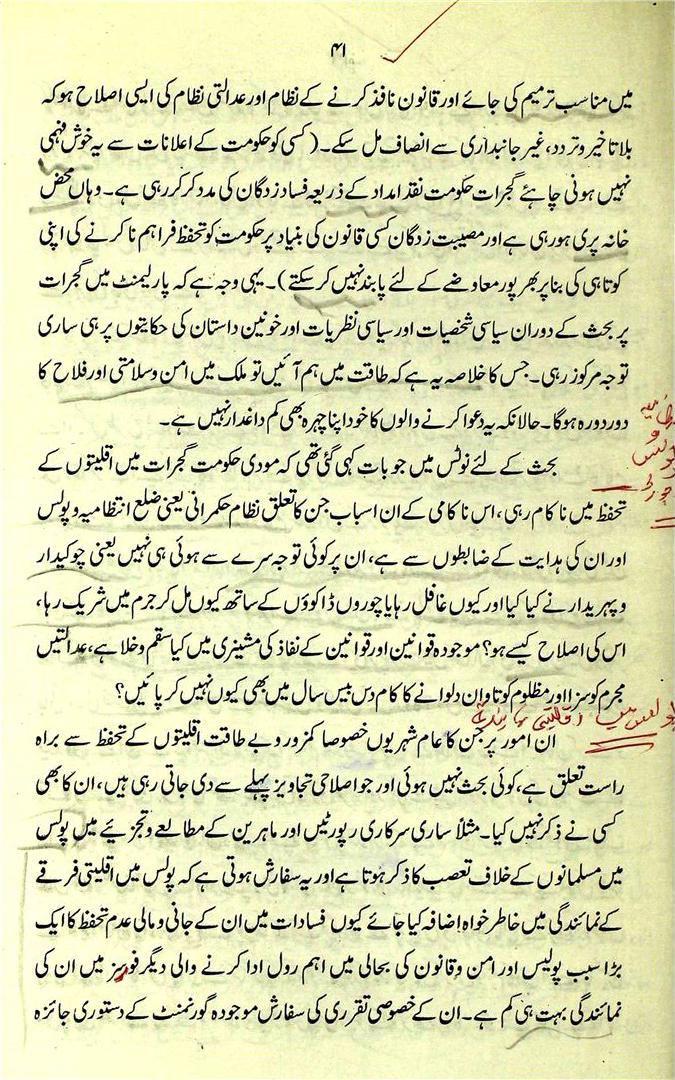 ۴۱
میں مناسب ترمیم کی جائے اور قانون نافذ کرنے کے نظام اور عدالتی نظام کی ایسی اصلاح ہو کہ
بلا تاخیر و تردد، غیر جانبداری سے انصاف مل سکے۔ (کسی کو حکومت کے اعلانات سے یہ خوش فہمی
نہیں ہونی چاہئے گجرات حکومت نقد امداد کے ذریعہ فساد زدگان کی مدد کر کررہی ہے۔ وہاں محض
خانہ پری ہورہی ہے اور مصیبت زدگان کسی قانون کی بنیاد پر حکومت کو تحفظ فراہم نا کرنے کی اپنی
کوتاہی کی بنا پر بھرپور معاوضے کے لئے پابند نہیں کرسکتے)۔ یہی وجہ ہے کہ پارلیمنٹ میں گجرات
پر بحث کے دوران سیاسی شخصیات اور سیاسی نظریات اور خونین داستان کی حکایتوں پر ہی ساری
توجہ مرکوز رہی۔ جس کا خلاصہ یہ ہے کہ طاقت میں ہم آئیں تو ملک میں امن وسلامتی اور فلاح کا
دور دورہ ہوگا۔ حالانکہ یہ دعوا کرنے والوں کا خود اپنا چہرہ بھی کم داغدار نہیں ہے۔
بحث کے لئے نوٹس میں جو بات کہی گئی تھی کہ مودی حکومت گجرات میں اقلیتوں کے
تحفظ میں ناکام رہی، اس ناکامی کے ان اسباب جن کا تعلق نظام حکمرانی یعنی ضلع انتظامیہ و پولس
اور ان کی ہدایت کے ضابطوں سے ہے، ان پر کوئی توجہ سرے سے ہوئی ہی نہیں یعنی چوکیدار
و پہریدار نے کیا کیا اور کیوں غافل رہا یا چوروں ڈاکوؤں کے ساتھ کیوں مل کر جرم میں شریک رہا،
اس کی اصلاح کیسے ہو؟ موجودہ قوانین اور قوانین کے نفاذ کی مشینری میں کیا سقم وخلا ہے، عدالتیں
مجرم کو سزا اور مظلوم کو تاوان دلوانے کا کام دس بیس سال میں بھی کیوں نہیں کر پائیں؟
ان امور پر جن کا عام شہریوں خصوصا کمزور و بے طاقت اقلیتوں کے تحفظ سے براہ
راست تعلق ہے، کوئی بحث نہیں ہوئی اور جو اصلاحی تجاویز پہلے سے دی جاتی رہی ہیں، ان کا بھی
کسی نے ذکر نہیں کیا۔ مثلاً ساری سرکاری رپورٹیں اور ماہرین کے مطالعے و تجزیئے میں پولس
میں مسلمانوں کے خلاف تعصب کا ذکر ہوتا ہے اور یہ سفارش ہوتی ہے کہ پولس میں اقلیتی فرقے
کے نمائندگی میں خاطر خواہ اضافہ کیا جائے کیوں فسادات میں ان کے جانی و مالی عدم تحفظ کا ایک
بڑا سبب پولیس اور امن و قانون کی بحالی میں اہم رول ادا کرنے والی دیگر فورسز میں ان کی
نمائندگی بہت ہی کم ہے۔ ان کے خصوصی تقرری کی سفارش موجودہ گورنمنٹ کے دستوری جائزہ